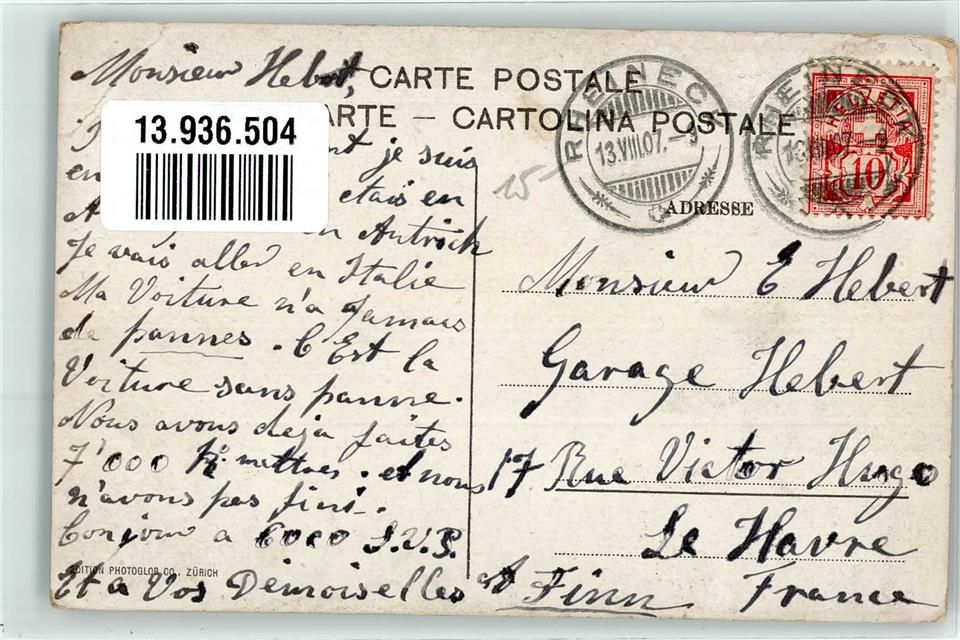 Monsieur Hebert,
CARTE POSTALE
ARTE — CARTOLINA POSTALE
13.936.504
je suis
en etais en
en Autrich
Je vais aller en Italie
Ma Voiture n'a Jamais
de pannes. C'Est la
Voiture sans panne.
Nous avons deja faites
7'000 Ki mettres. et nous
n'avons pas fini.
Bonjour a Coco S.V.P.
Et a Vos Demoiselles et Finn
EDITION PHOTOGLOB CO., ZÜRICH
RHEINECK
13.VIII.07.
RHEINECK
13.VIII.
10
15
ADRESSE
Monsieur E Hebert
Garage Hebert
17 Rue Victor Hugo
Le Havre
France